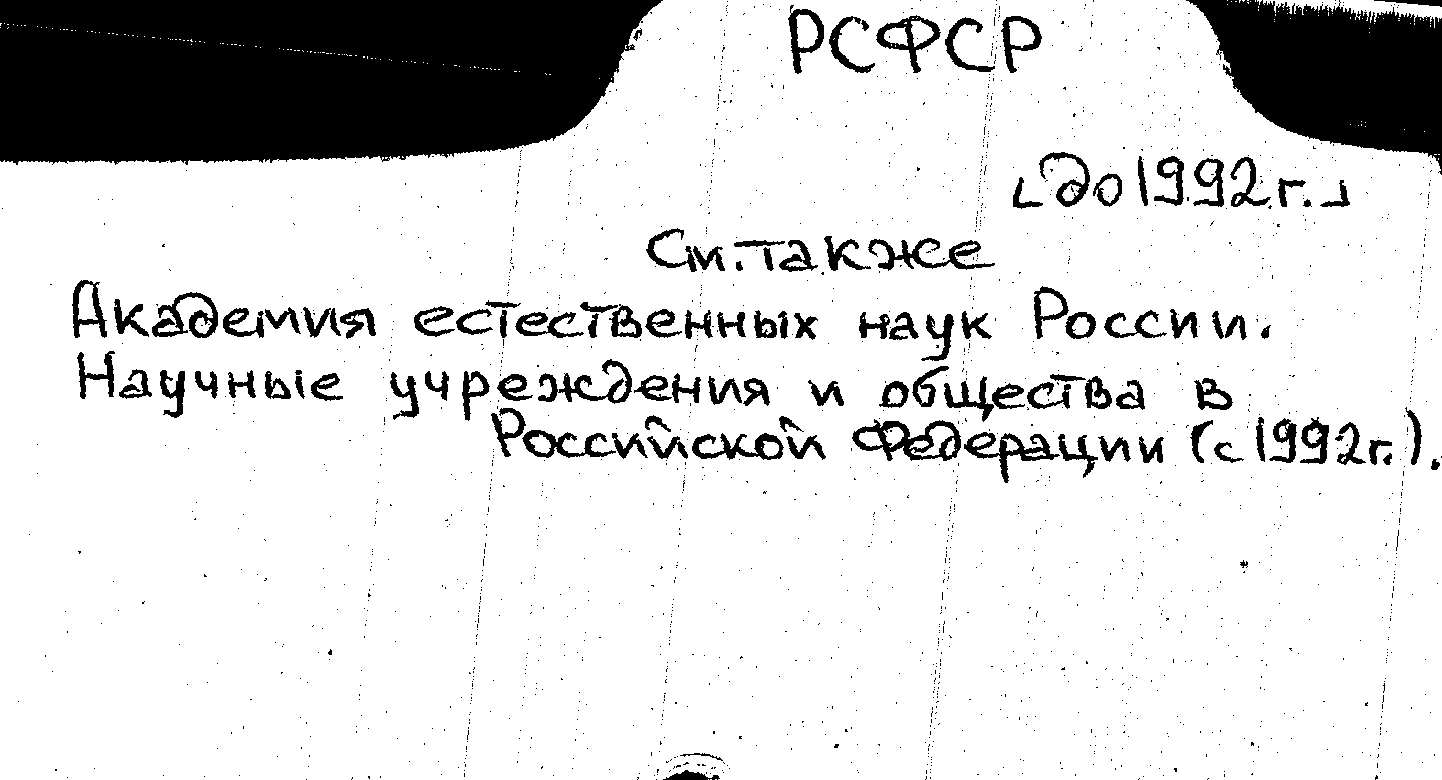 РСФСР
⌞до 1992 г.⌟
См. также
Академия естественных наук России.
Научные учреждения и общества в
Российской Федерации (с 1992 г.).